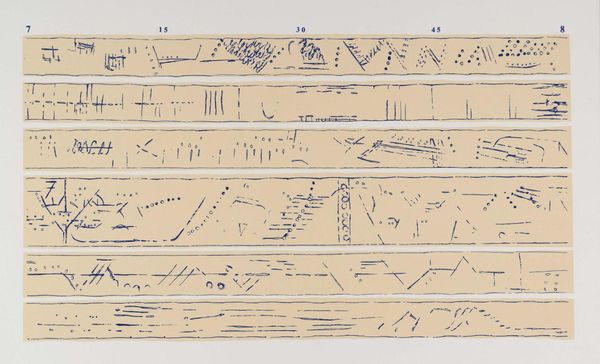 7 15 30 45 8